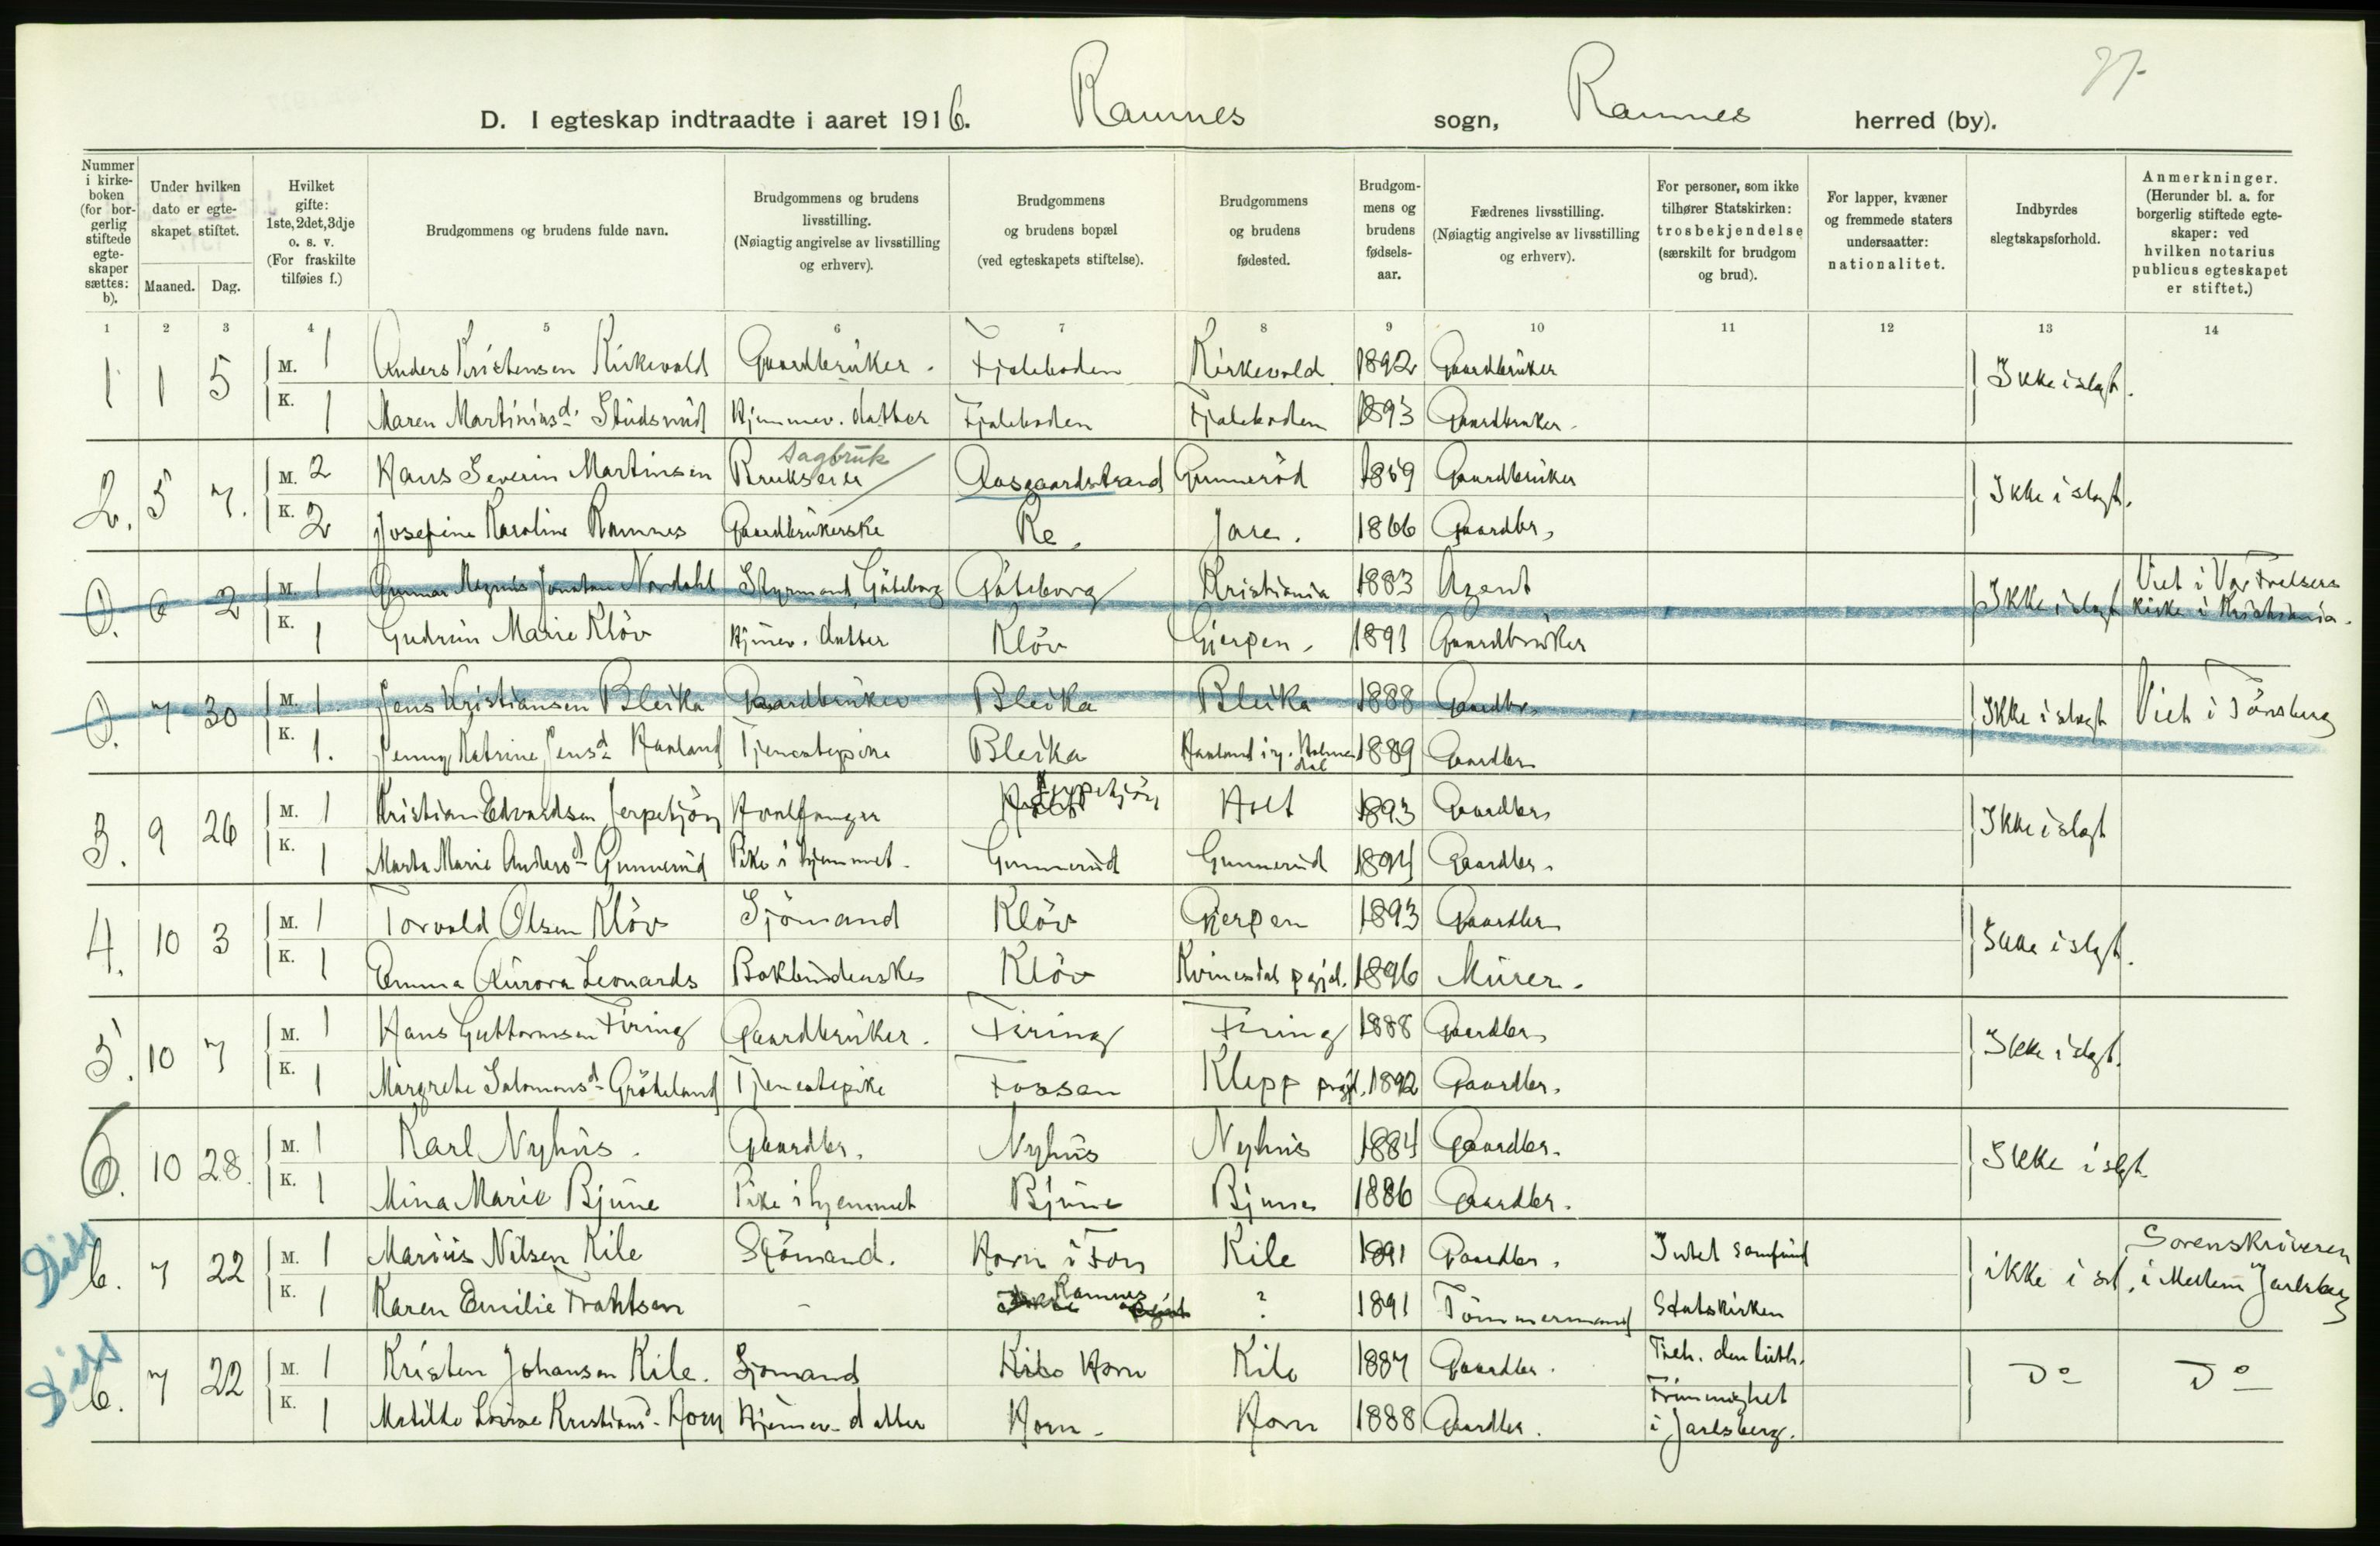 D. I egteskap indtraadte i aaret 1916. Ramnes sogn, Ramnes herred (by).
Nummer i kirkeboken (for borgerlig stiftede egteskaper sættes: b).
Under hvilken dato er egteskapet stiftet.
Maaned. Dag.
Hvilket gifte: 1ste, 2det, 3dje o. s. v. (For fraskilte tilføies f.)
Brudgommens og brudens fulde navn.
Brudgommens og brudens livsstilling. (Nøiagtig angivelse av livsstilling og erhverv).
Brudgommens og brudens bopæl (ved egteskapets stiftelse).
Brudgommens og brudens fødested.
Brudgommens og brudens fødselsaar.
Fædrenes livsstilling. (Nøiagtig angivelse av livsstilling og erhverv).
For personer, som ikke tilhører Statskirken: trosbekjendelse (særskilt for brudgom og brud).
For lapper, kvæner og fremmede staters undersaatter: nationalitet.
Indbyrdes slegtskapsforhold.
Anmerkninger. (Herunder bl. a. for borgerlig stiftede egteskaper: ved hvilken notarius publicus egteskapet er stiftet.)
1 2 3 4 5 6 7 8 9 10 11 12 13 14
1 1 5 M. 1 Anders Kristensen Kirkevold Gaardbruker. Fjaleboden Kirkevold 1892 Gaardbruker Ikke i slegt.
K. 1 Maren Martiniusd. Studsrud Hjemmev. datter Fjaleboden Fjaleboden 1893 Gaardbruker.
2. 5 7. M. 2 Hans Severin Martinsen Brukseier Sagbruk Aasgaardstrand Gunneröd 1859 Gaardbruker Ikke i slegt.
K. 2 Josefine Karoline Ramnes Gaardbrukerske Re. Jare. 1866 Gaardbr.
0. 6 2 M. 1 Gunnar Magnus Jonatan Nordahl Styrmand, Göteborg Göteborg Kristiania 1883 Agent Ikke i slegt Viet i Vor Frelsers kirke i Kristiania.
K. 1 Gudrun Marie Klöv Hjemev. datter Klöv Gjerpen. 1891 Gaardbruker
0. 7 30 M. 1. Jens Kristiansen Bleika Gaardbruker Bleika Bleika 1888 Gaardbr. Ikke i slegt Viet i Tönsberg
K. 1. Jenny Katrine Jensd. Haaland Tjenestepike Bleika Haaland i 1889 Gaardbr.
3. 9 26 M. 1 Kristian Edvardsen Jerpekjön Hvalfanger Jerpekjön Holt 1893 Gaardbr. Ikke i slegt
K. 1 Marta Marie Andersd. Gunnerud Pike i hjemmet. Gunnerud Gunnerud 1894 Gaardbr.
4. 10 3 M. 1 Torvald Olsen Klöv Sjömand Klöv Gjerpen 1893 Gaardbr. Ikke i slegt.
K. 1 Emma Aurora Leonards Bokbinderske Klöv Kvinesdal pgjd. 1896 Murer.
5. 10 7 M. 1 Hans Guttormsen Firing Gaardbruker. Firing Firing 1888 Gaardbr. Ikke i slegt.
K. 1 Margrete Salomonsd. Gröteland Tjenestepike Fossan Klepp prgjd. 1892 Gaardbr.
6. 10 28. M. 1 Karl Nyhus. Gaardbr. Nyhus Nyhus 1884 Gaardbr. Ikke i slegt.
K. 1 Mina Marie Bjune Pike i hjemmet Bjune Bjune 1886 Gaardbr.
Diss b. 7 22 M. 1 Marius Nilsen Kile Sjömand. Horn i Fon Kile 1891 Gaardbr. Intet samfund ikke i sl. Sorenskriveren i Mellem Jarlsberg
K. 1 Karen Emilie Trahtsen - Ramnes ? 1891 Tömmermand Statskirken
Diss b. 7 22 M. 1 Kristen Johansen Kile. Sjömand Kile Horn Kile 1887 Gaardbr. Tilh. den luth. Do Do
K. 1 Matilde Lovise Kristiansd. Horn Hjemmev. datter Horn. Horn 1888 Gaardbr. Frimenighet i Jarlsberg.